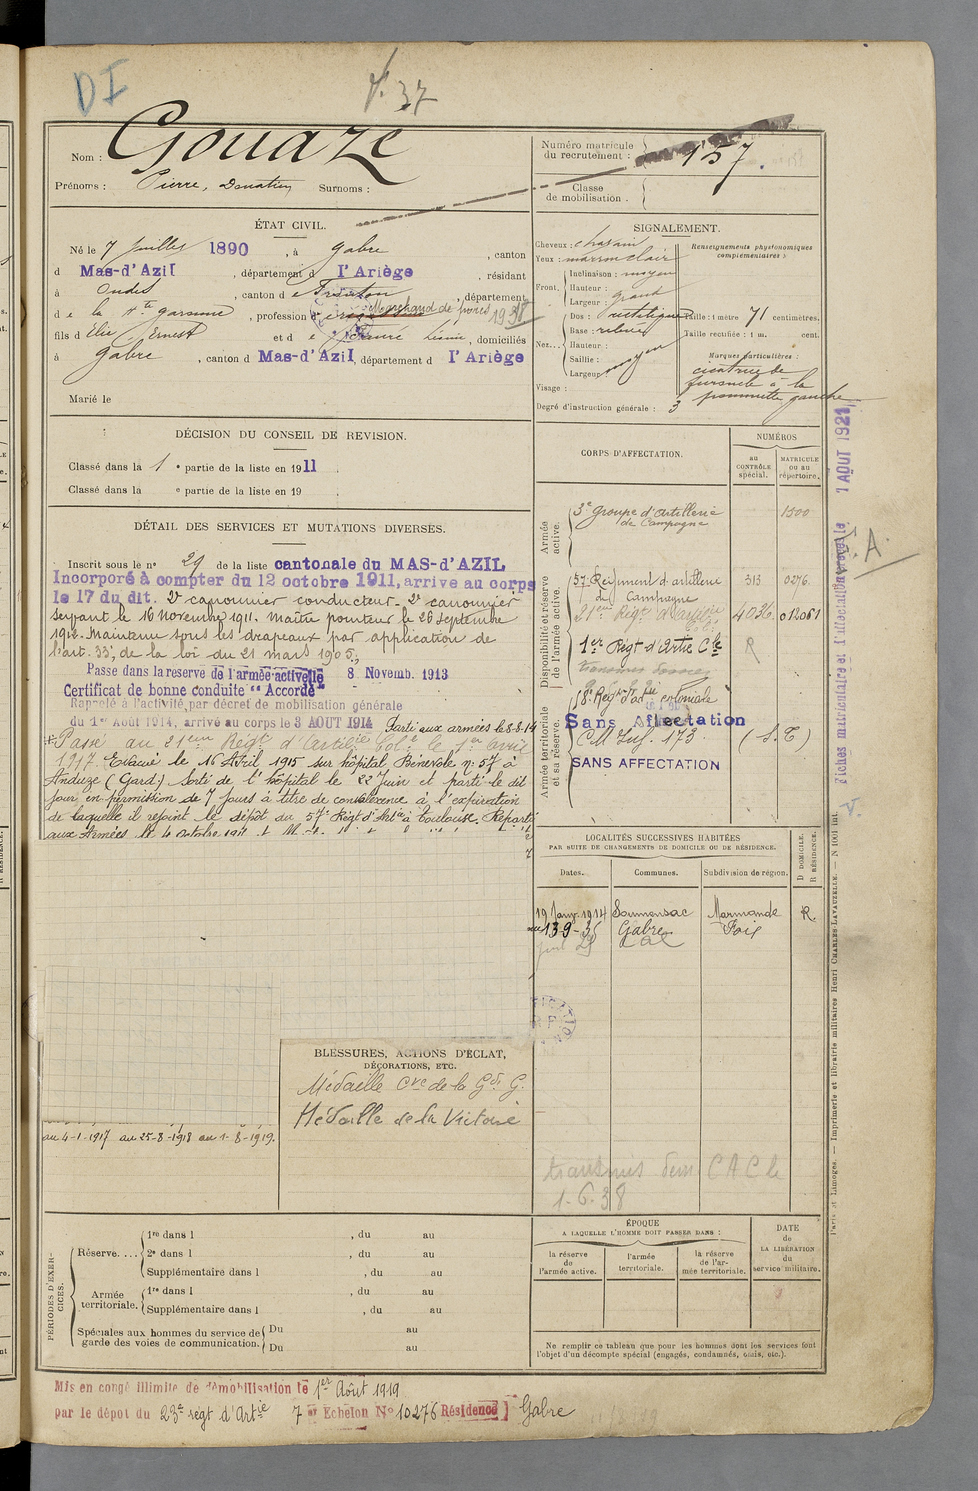 DI
V. 37
Nom : Gouazé
Prénoms : Pierre, Donatien Surnoms :
Numéro matricule du recrutement : 137.
Classe de mobilisation.
ÉTAT CIVIL.
Né le 7 juillet 1890, à Gabre, canton
d Mas-d'Azil, département d l'Ariège, résidant
à Ondes, canton d e Fronton, département
d e la Hte garonne, profession d Marchand de porcs 1938
fils d Elie, Ernest et d e Lésinie, domiciliés
à Gabre, canton d Mas-d'Azil, département d l'Ariège
Marié le
SIGNALEMENT.
Cheveux : chatain
Yeux : marron clair
Renseignements physionomiques complémentaires :
Front. Inclinaison : moyen
Hauteur :
Largeur : grand
Nez... Dos : rectiligne
Base : relevé
Hauteur :
Saillie : moyen
Largeur :
Taille : 1 mètre 71 centimètres.
Taille rectifiée : 1 m. cent.
Marques particulières :
cicatrice de
furoncle à la
pommette gauche
Visage :
Degré d'instruction générale : 3
DÉCISION DU CONSEIL DE REVISION.
Classé dans la 1 e partie de la liste en 1911
Classé dans la e partie de la liste en 19
DÉTAIL DES SERVICES ET MUTATIONS DIVERSES.
Inscrit sous le n° 29 de la liste cantonale du MAS-d'AZIL
Incorporé à compter du 12 octobre 1911, arrive au corps
le 17 du dit. 2e canonnier conducteur. 2e canonnier
servant le 16 Novembre 1911. Maître pointeur le 26 Septembre
1912. Maintenu sous les drapeaux par application de
l'art. 33, de la loi du 21 mars 1905.
Passe dans la reserve de l'armée active le 8 Novemb. 1913
Certificat de bonne conduite "Accordé"
Rappelé à l'activité par décret de mobilisation générale
du 1er Août 1914, arrivé au corps le 3 AOUT 1914 Parti aux armées le 8-8-14
Passé au 21eme Régt d'Artilie Colle le 1er avril
1917. Evacué le 16 Avril 1915 sur hôpital Bénévole n: 57 à
Anduze (Gard) Sorti de l'hôpital le 22 Juin et parti le dit
jour en permission de 7 jours à titre de convalescence à l'expiration
de laquelle il rejoint le dépôt du 57e Régt d'Artie à Toulouse. Reparti
aux Armées le 4 octobre
CORPS D'AFFECTATION.
NUMÉROS
au CONTRÔLE spécial.
MATRICULE ou au répertoire.
Armée active.
3e groupe d'artillerie de Campagne 1500
Disponibilité et réserve de l'armée active.
57 Régiment d'artillerie de Campagne 313 0276.
21eme Régt d'artillerie 4036 012061
1er Régt d'Artie Cle R
Armée territoriale et sa réserve.
18e Régt d'artie coloniale
Sans Affectation
C M Inf. 173 (S.T)
SANS AFFECTATION
Fiches matriculaire et d'affectation 1 AOUT 1921
S.A.
V.
LOCALITÉS SUCCESSIVES HABITÉES
PAR SUITE DE CHANGEMENTS DE DOMICILE OU DE RÉSIDENCE.
Dates. Communes. Subdivision de région.
D DOMICILE. R RÉSIDENCE.
19 Janv. 1914 Soumensac Marmande R.
13-9-35 Gabre Foix
BLESSURES, ACTIONS D'ÉCLAT, DÉCORATIONS, ETC.
Médaille Cve de la Gde G.
Médaille de la Victoire
au 4-1-1917 au 25-8-1918 au 1-8-1919.
transmis dem CAC le
1-6-38
PÉRIODES D'EXERCICES.
Réserve.... 1re dans l , du au
2e dans l , du au
Supplémentaire dans l , du au
Armée territoriale. 1re dans l , du au
Supplémentaire dans l , du au
Spéciales aux hommes du service de garde des voies de communication. Du au
Du au
ÉPOQUE
A LAQUELLE L'HOMME DOIT PASSER DANS :
la réserve de l'armée active.
l'armée territoriale.
la réserve de l'armée territoriale.
DATE DE LA LIBÉRATION du service militaire.
Ne remplir ce tableau que pour les hommes dont les services font
l'objet d'un décompte spécial (engagés, condamnés, omis, etc.).
Paris et Limoges. — Imprimerie et librairie militaires Henri CHARLES-LAVAUZELLE. — N 1001 int.
Mis en congé illimité de démobilisation le 1er Août 1919
par le dépot du 23e régt d'Artie 7e Echelon N° 10276 Résidence Gabre